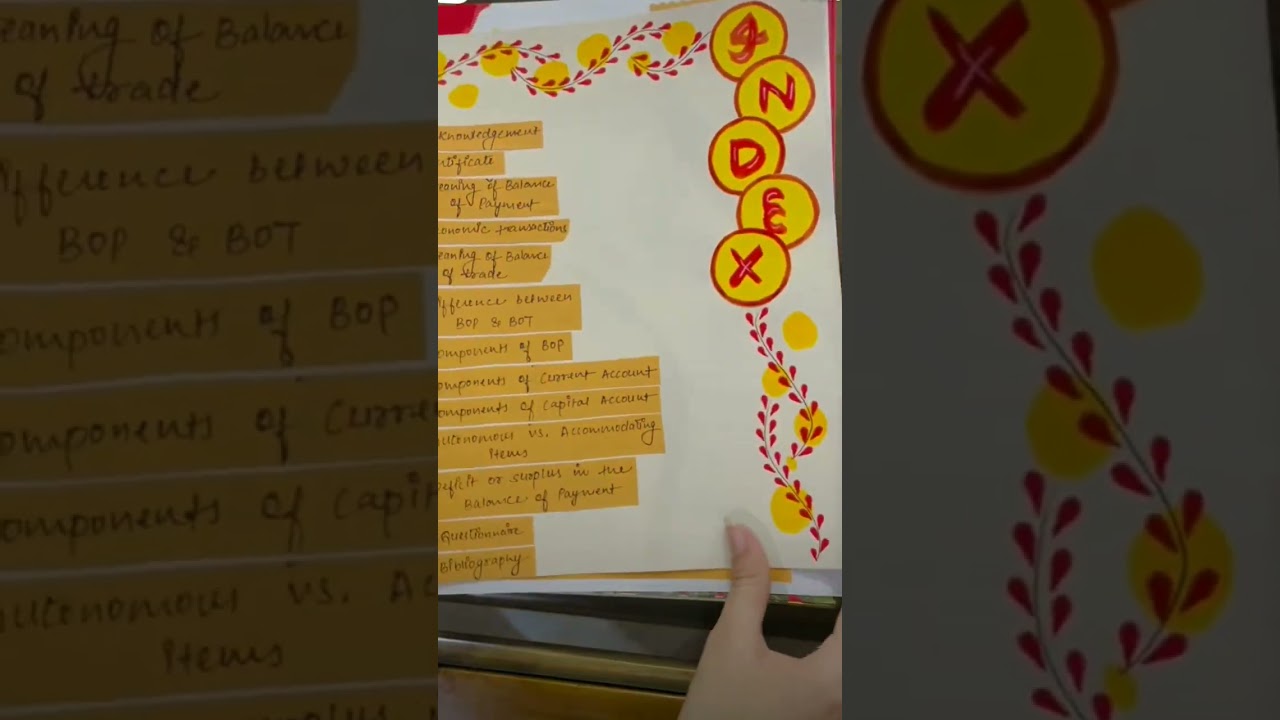 eaning of Balance
of trade
ifference between
BOP & BOT
omponents of BOP
omponents of Curre
omponents of Capit
utonomous vs. Ac
items
INDEX
knowledgement
tificate
eaning of Balance
of Payment
conomic transactions
eaning of Balance
of trade
ifference between
BOP & BOT
omponents of BOP
omponents of Current Account
omponents of Capital Account
utonomous vs. Accommodating
items
eficit or surplus in the
Balance of Payment
Questionnaire
Bibliography
X